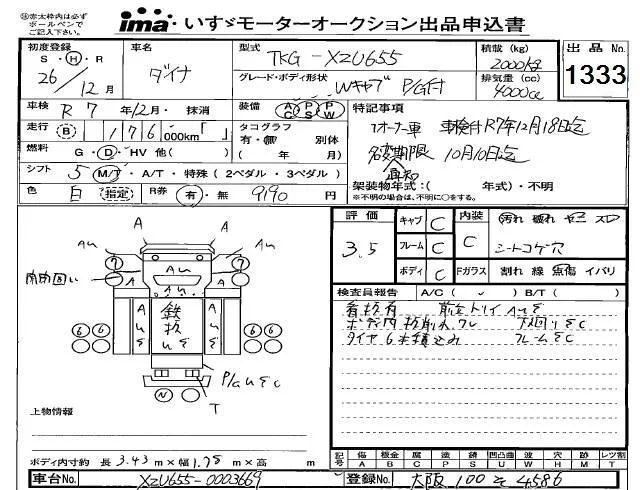 ※赤太枠内は必ず
ボールペンで
ご記入下さい。
ima いすゞモーターオークション出品申込書
初度登録 車名 型式 TKG-XZU655 積載(kg) 2000kg 出品No.
S・H・R ダイナ グレード・ボディ形状 排気量(cc) 1333
26/12月 Wキャブ P/G付 4000cc
車検 R7年12月・抹消 装備 AC PS PW 特記事項
走行 B 176,000km「 」 タコグラフ 1オーナー車 車検付R7年12月18日迄
燃料 G・D・HV 他( ) 有・無 別体 名変期限 10月10日迄
( 年 月) 厳知
シフト 5 M/T・A/T・特殊(2ペダル・3ペダル) 架装物年式:( 年式)・不明
色 白 指定 R券 有・無 9190円 ※不明の場合は、不明に○をする。
評価 3.5
キャブ C 内装 C 汚れ 破れ ヤニ スレ
フレーム C シートコゲ穴
ボディ C Fガラス 割れ 線 点傷 イバリ
検査員報告 A/C( ✓ ) B/T( )
看板有
タイヤ6本積込み フレームEC
A A
Au Au
7 7
Au
A A
A
Au
E
鉄板
uE
A
u
E
6 6 6 6
P/G uEC
N
T
上物情報
ボディ内寸約 長3.43m×幅1.78m×高 m
記号 傷 板金 腐 塗 錆 凹凸曲 波 穴 跡 レツ割
A B C P S U W H M T
車台No. XZU655-0003669 登録No. 大阪 100 そ 4586